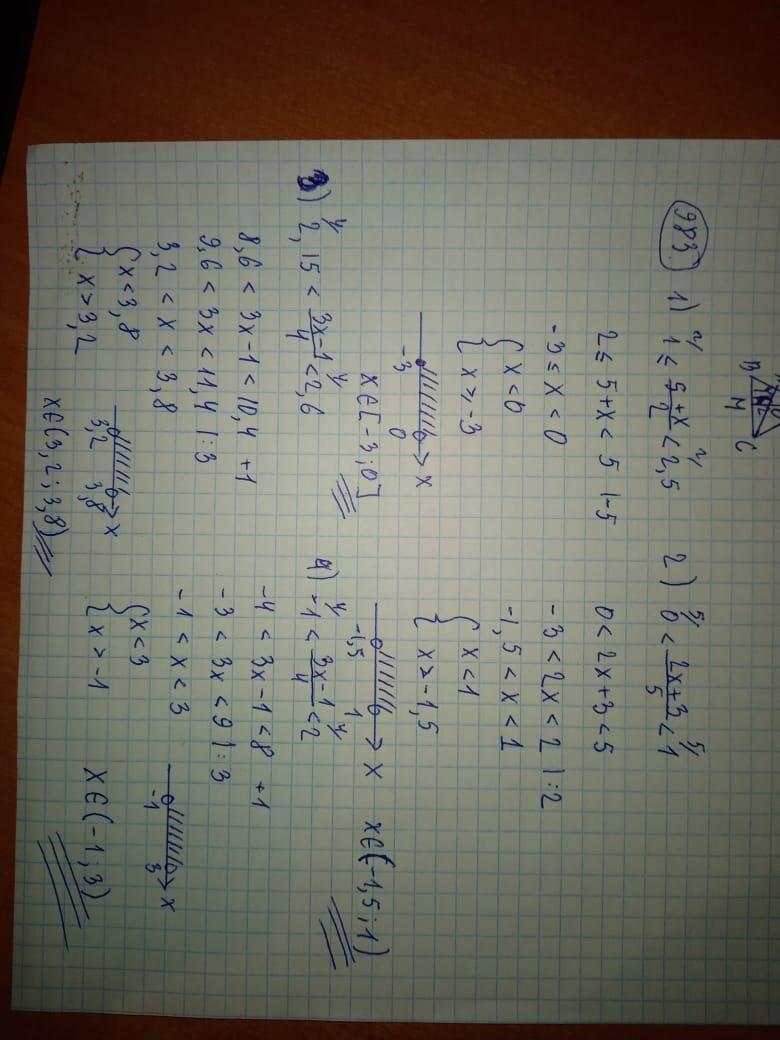 B M C
983.
1) 1 ≤ (5+x)/2 < 2,5
2 ≤ 5+x < 5 |-5
-3 ≤ x < 0
{ x < 0
{ x ≥ -3
-3 0 x
x∈[-3;0]
2) 0 < (2x+3)/5 < 1
0 < 2x+3 < 5
-3 < 2x < 2 |:2
-1,5 < x < 1
{ x < 1
{ x > -1,5
-1,5 1 x
x∈(-1,5;1)
3) 2,15 < (3x-1)/4 < 2,6
8,6 < 3x-1 < 10,4 +1
9,6 < 3x < 11,4 |:3
3,2 < x < 3,8
{ x < 3,8
{ x > 3,2
3,2 3,8 x
x∈(3,2;3,8)
4) -1 < (3x-1)/4 < 2
-4 < 3x-1 < 8 +1
-3 < 3x < 9 |:3
-1 < x < 3
{ x < 3
{ x > -1
-1 3 x
x∈(-1;3)